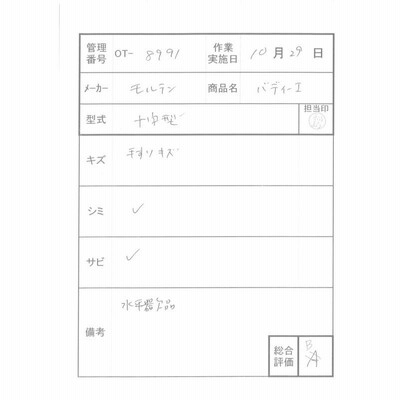 管理番号 OT- 8991 作業実施日 10月29日
メーカー モルテン 商品名 バディーI
型式 十字型 担当印
キズ すりキズ
シミ ✓
サビ ✓
備考 水平器欠品
総合評価 B A